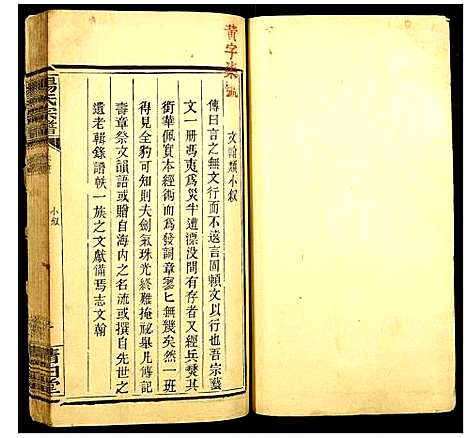 黃字柒號
文翰類小叙
傳曰言之無文行而不遠言固賴文以行也吾宗藝
文一冊馮夷為災半遭漂没間有存者又經兵燹其
銜華佩實本經術而為發詞章寥匕無幾矣然一班
得見全豹可知則夫劍氣珠光終難掩祕舉凡傳記
壽章祭文韻語或贈自海内之名流或撰自先世之
遺老輯錄譜帙一族之文獻備焉志文翰
楊氏宗譜
小叙
清白堂